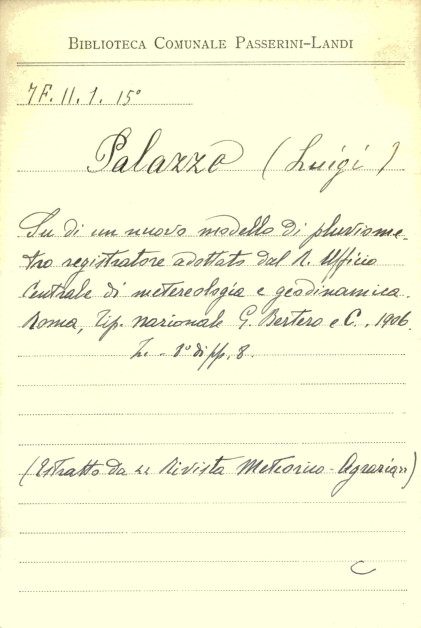 BIBLIOTECA COMUNALE PASSERINI-LANDI
7F. II. 1. 15°
Palazzo (Luigi)
Su di un nuovo modello di pluviome-
tro registratore adottato dal R. Ufficio
Centrale di metereologia e geodinamica.
Roma, Tip. nazionale G. Bertero e C., 1906.
8.
(Estratto da "Rivista Meteorico-Agraria")
C